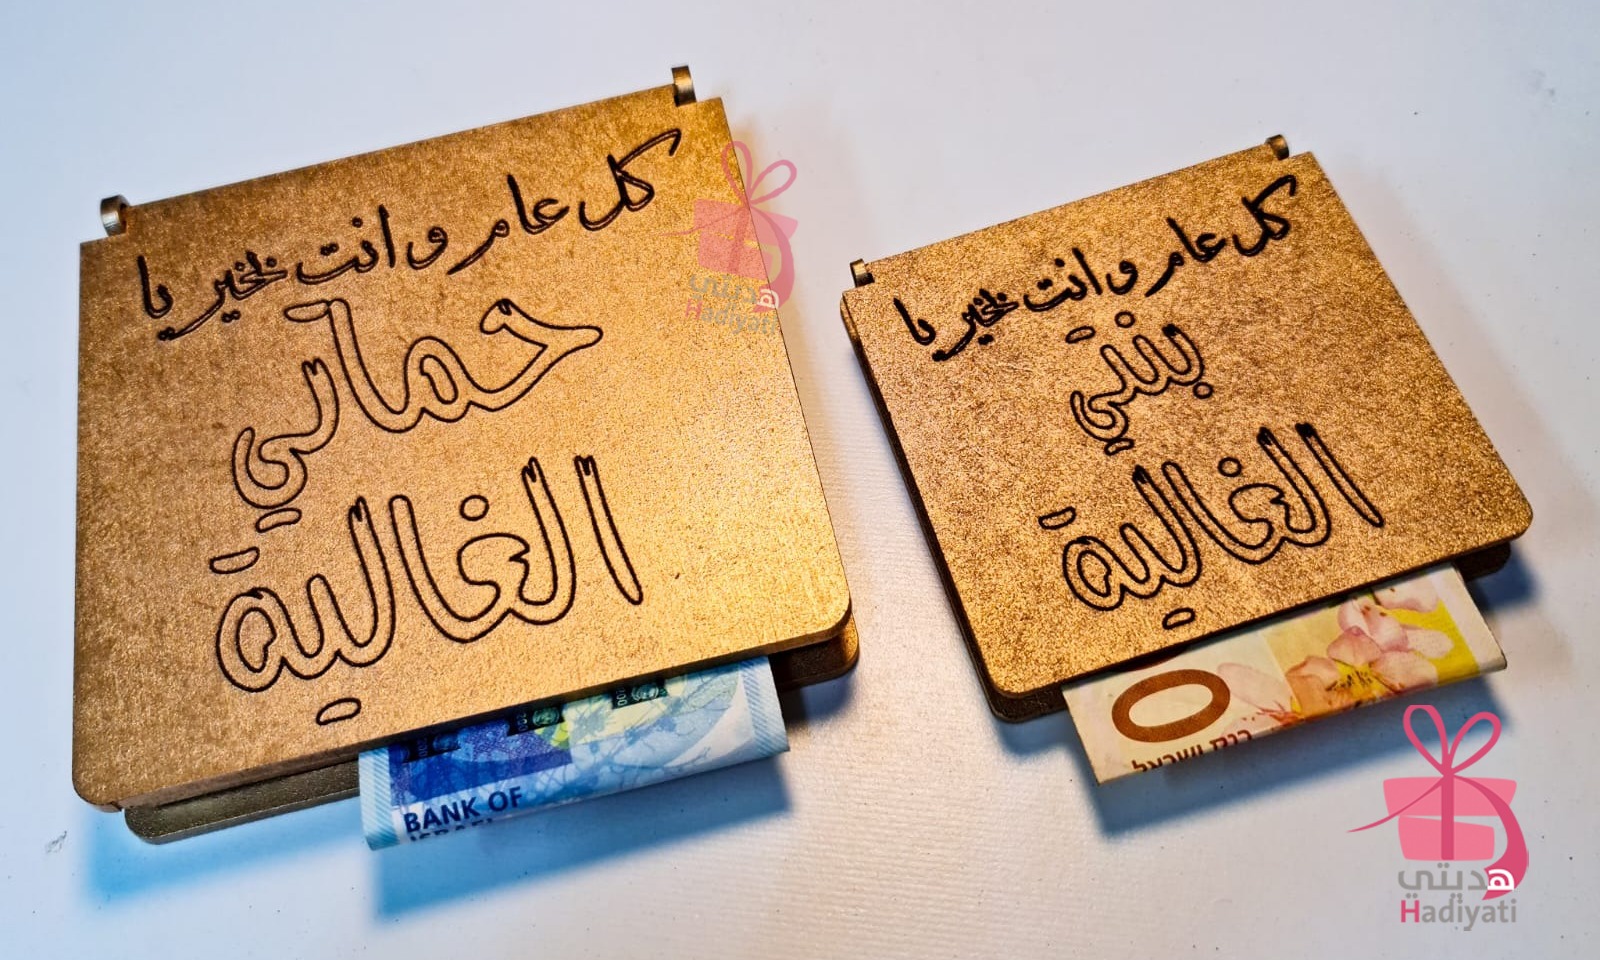 كل عام و انت بخير يا
حماتي
الغالية
BANK OF
ISRAEL
كل عام و انت بخير يا
بنتي
الغالية
0
בנק ישראל
هديتي
Hadiyati
هديتي
Hadiyati